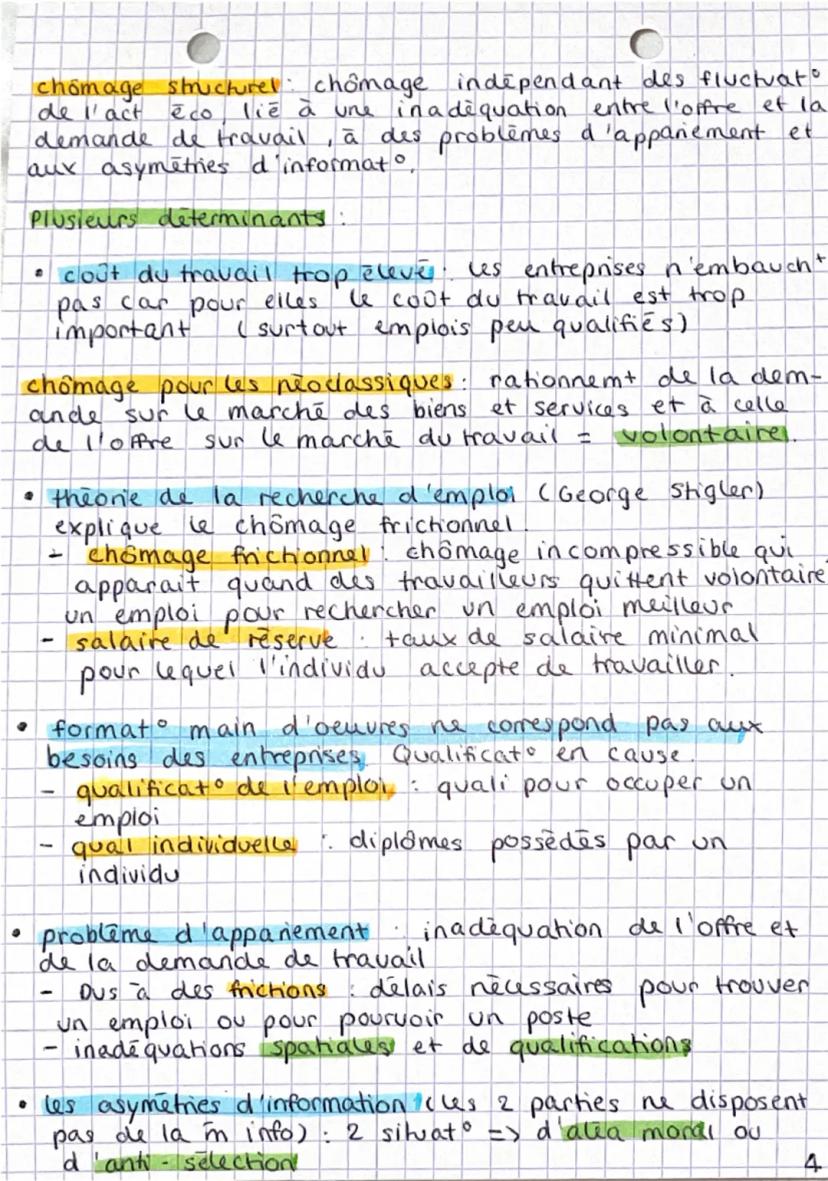 chômage structurel : chômage indépendant des fluctuat°
de l'act éco, lié à une inadéquation entre l'offre et la
demande de travail, à des problèmes d'appariement et
aux asymétries d'informat°.
Plusieurs déterminants :
• coût du travail trop élevé : les entreprises n'embauch^t
pas car pour elles le coût du travail est trop
important (surtout emplois peu qualifiés)
chômage pour les néoclassiques : rationnemt de la dem-
ande sur le marché des biens et services et à celle
de l'offre sur le marché du travail = volontaire.
• théorie de la recherche d'emploi (George Stigler)
explique le chômage frictionnel.
- chômage frictionnel : chômage incompressible qui
apparait quand des travailleurs quittent volontaire
un emploi pour rechercher un emploi meilleur
- salaire de réserve : taux de salaire minimal
pour lequel l'individu accepte de travailler.
• format° main d'oeuvres ne correspond pas aux
besoins des entreprises. Qualificat° en cause.
- qualificat° de l'emploi, : quali pour occuper un
emploi
- qual individuelle : diplômes possédés par un
individu
• problème d'appariement : inadéquation de l'offre et
de la demande de travail
- Dus à des frictions : délais nécessaires pour trouver
un emploi ou pour pourvoir un poste
- inadéquations spatiales et de qualifications
• les asymétries d'information (les 2 parties ne disposent
pas de la m̄ info) : 2 situat° => d'aléa moral ou
d'anti-sélection
4